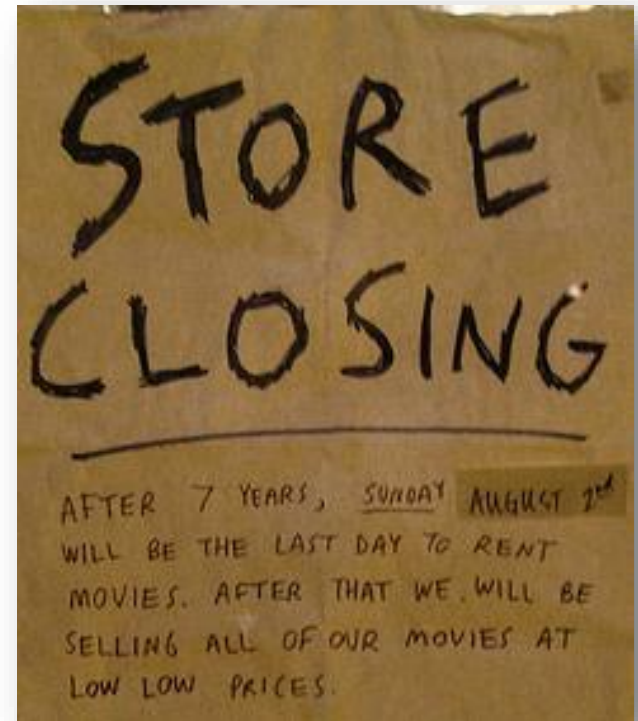 STORE
CLOSING
AFTER 7 YEARS, SUNDAY AUGUST 2nd
WILL BE THE LAST DAY TO RENT
MOVIES. AFTER THAT WE WILL BE
SELLING ALL OF OUR MOVIES AT
LOW LOW PRICES.